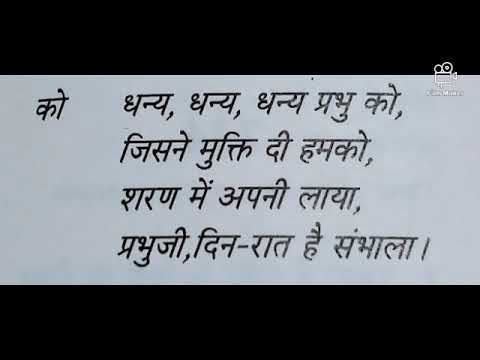 को धन्य, धन्य, धन्य प्रभु को,
जिसने मुक्ति दी हमको,
शरण में अपनी लाया,
प्रभुजी,दिन-रात है संभाला।